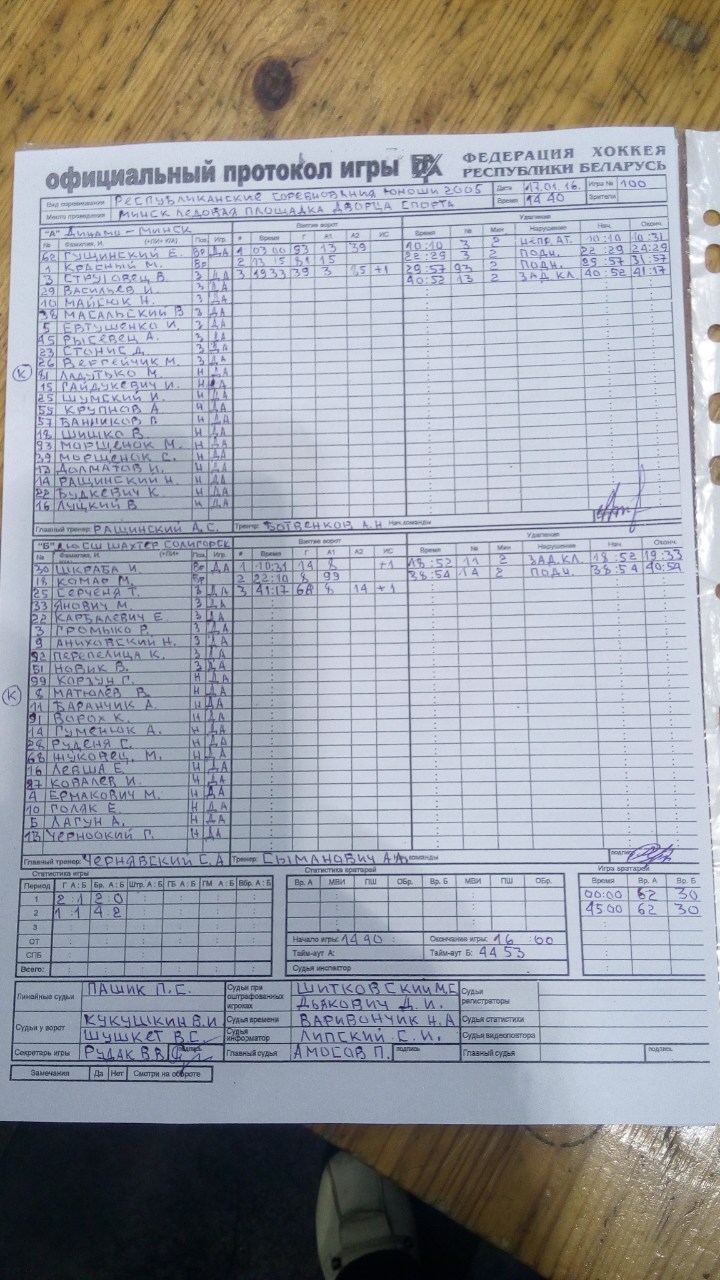 официальный протокол игры ФЕДЕРАЦИЯ ХОККЕЯ РЕСПУБЛИКИ БЕЛАРУСЬ
Вид соревнования РЕСПУБЛИКАНСКИЕ СОРЕВНОВАНИЯ ЮНОШИ 2005 Дата 17.01.16. Игра № 100
Место проведения МИНСК ЛЕДОВАЯ ПЛОЩАДКА ДВОРЦА СПОРТА Время 14 40 Зрители
"А" ДИНАМО - МИНСК Взятие ворот Удаления
№ Фамилия, И. Поз. Игр. # Время Г А1 А2 ИС Время № Мин Нарушение Нач. Оконч.
62 ГУЩИНСКИЙ Е. Вр ДА 1 03 00 93 13 39 10:10 3 2 НЕПР. АТ. 10:10 10:31
1 КРАСНЫЙ М. Вр 2 13 15 81 15 22:29 3 2 ПОДН. 22:29 24:29
3 СТРУГОВЕЦ В. З ДА 3 1933 39 3 +1 29:57 93 2 ПОДН. 31:57
29 ВАСИЛЬЕВ И. З ДА 40:52 13 2 ЗАД.КЛ. 40:52 41:17
10 МАЙСЮК Н. З ДА
38 МАСАЛЬСКИЙ В З ДА
5 ЕВТУШЕНКО И. З ДА
45 РЫСЕВЕЦ А. З ДА
23 СТОНИС Д. З ДА
26 ВЕРГЕЙЧИК М. З ДА
К 81 ЛАДУТЬКО М. Н ДА
15 ГАЙДУКЕВИЧ И. Н ДА
25 ШУМСКИЙ И. Н ДА
КРУПНОВ А Н ДА
57 БАННИКОВ В Н ДА
18 ШИШКО В. Н ДА
93 МОРЩЕНОК М. Н ДА
39 МОРЩЕНОК С. Н ДА
13 ДОЛМАТОВ И. Н ДА
14 РАЩИНСКИЙ Н. Н ДА
22 БУДКЕВИЧ К. Н ДА
16 ЛУЦКИЙ В Н ДА
Главный тренер: РАЩИНСКИЙ А.С. Тренер: БОТВЕНКОВ А.Н Нач.команды
"Б" ДЮСШ ШАХТЕР СОЛИГОРСК Взятие ворот Удаления
№ Фамилия, И. Поз. Игр. # Время Г А1 А2 ИС Время № Мин Нарушение Нач. Оконч.
30 ШКРАБА И. Вр ДА 1 10:31 14 8 +1 18:52 11 2 ЗАД.КЛ. 18:52 19:33
18 КОМАР М. Вр 2 22:10 8 99 38:54 14 2 ПОДН. 38:54 40:54
25 СЕРЧЕНЯ Т. З ДА 3 41:17 68 8 14 +1
33 ЯНОВИЧ М. З ДА
22 КАРБАЛЕВИЧ Е. З ДА
3 ГРОМЫКО Р. З ДА
9 АНИХОВСКИЙ Н. З ДА
92 ПЕРЕПЕЛИЦА К. З ДА
51 НОВИК В. З ДА
99 КОРЗУН Г. Н ДА
К 8 МАТЮЛЕВ В. Н ДА
11 БАРАНЧИК А. Н ДА
91 ВОРОХ К. Н ДА
14 ГУМЕНЮК А. Н ДА
28 РУДЕНЯ С. Н ДА
68 ЖУКОВЕЦ. М. Н ДА
16 ЛЕВША Е. Н ДА
87 КОВАЛЕВ И. Н ДА
4 ЕРМАКОВИЧ М. Н ДА
10 ГОЛЯК Е. Н ДА
5 ЛАГУН А. Н ДА
13 ЧЕРНООКИЙ Г. Н ДА
Главный тренер: ЧЕРНЯВСКИЙ С.А Тренер: СЫМАНОВИЧ А.А. команды подпись
Статистика игры Статистика вратарей Игра вратарей
Период Г А : Б Бр. А : Б Штр. А : Б ГБ А : Б ГМ А : Б Вбр. А : Б Вр. А МВИ ПШ Обр. Вр. Б МВИ ПШ Обр. Время Вр. А Вр. Б
1 2 : 1 2 : 0 00:00 62 30
2 1 : 1 4 : 2 45 00 62 30
3
ОТ Начало игры: 14 40 Окончание игры: 16 : 00
СПБ Тайм-аут А: Тайм-аут Б: 44 53
Всего: Судьи инспектор
Линейные судьи ПАШИК П.С. Судьи при оштрафованных игроках ШИТКОВСКИЙ М.Е ДЬЯКОВИЧ Д.И. Судьи регистраторы
Судьи у ворот КУКУШКИН В.И Судьи времени ВАРИВОНЧИК Н.А Судьи статистики
ШУШКЕТ В.С. Судья информатор ЛИПСКИЙ С.И. Судьи видеоповтора
Секретарь игры РУДАК В.В подпись Главный судья АМОСОВ П. подпись Главный судья подпись
Замечания Да Нет Смотри на обороте